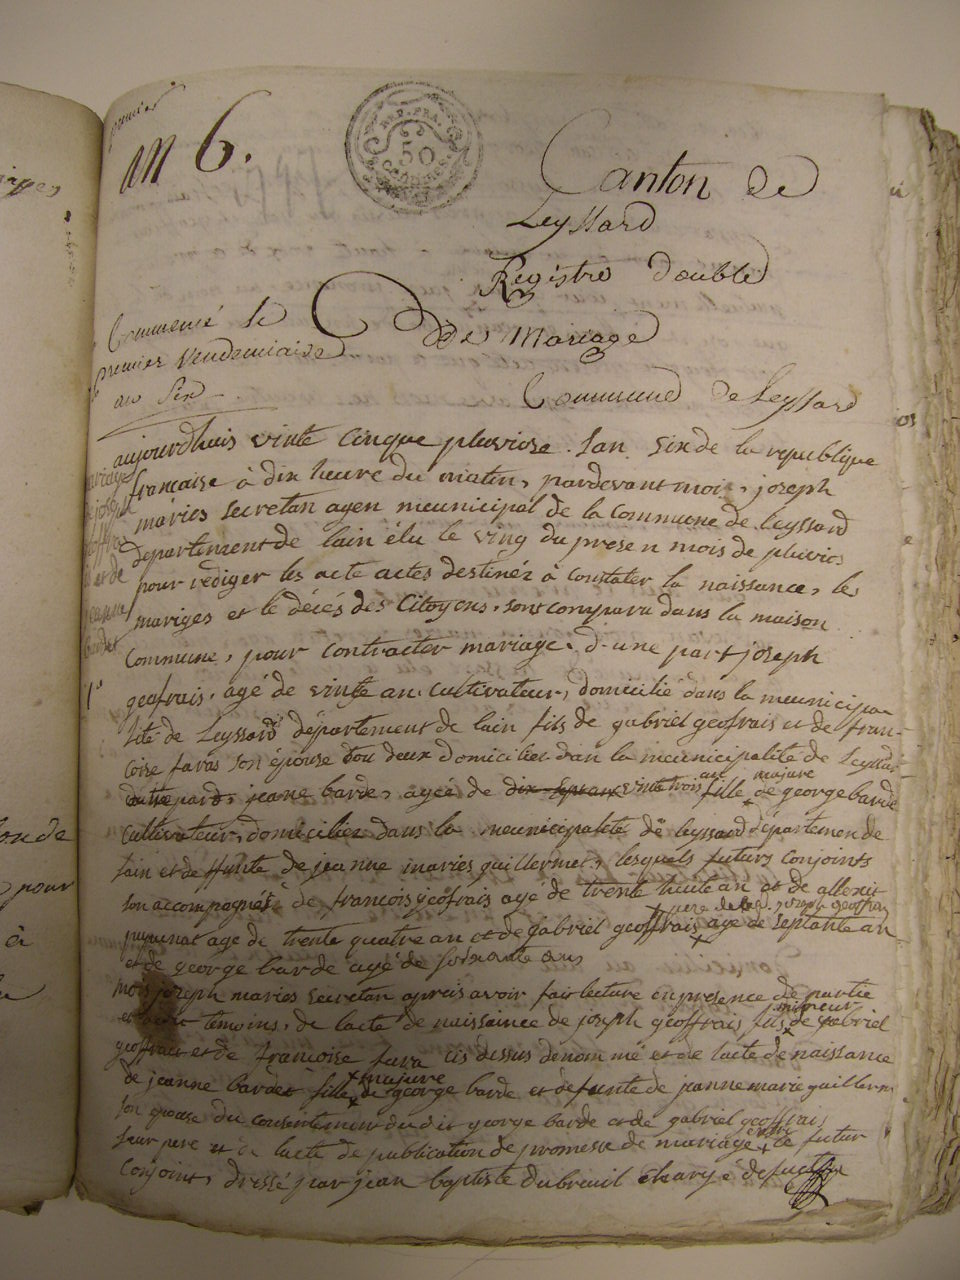 premier
an 6.
REP. FRA.
50
CENTIMES
Canton de
Leyssard
Registre double
de Mariage
Commencé le
premier Vendemiaire
an Six
Commune de Leyssard
aujourdhuis vinte cinque pluviose lan six de la republique
francaise à dix heure du matin, pardevant moi, joseph
maries secretan agen meunicipal de la Commune de Leyssard
departement de lain élu le ving du presen mois de pluvios
pour rediger les acte actes destinéz à constater la naissance, les
mariges et le décés des Citoyens, sont comparu dans la maison
Commune, pour contracter mariage, d'une part joseph
geofrais, agé de vinte an cultivateur, domicilié dans la meunicipa
lité de Leyssard département de lain fils de gabriel geofrais et de fran-
coise faras son épouse tou deux domicilies dan la meunicipalité de Leyssard
dautre pard, jeane barde, agée de dix sept an vinte trois an fille majure de george barde
Cultivateur, domiciliez dans la meunicipalité de leyssard départemen de
lain et de ffunte de jeanne maries guillermet, lesquels futurs conjoints
son accompagnés de francois geofrais agé de trente huite an et de
pere de led. joseph geoffray
age de trente quatre an et de gabriel geoffrais age de septante an
et de george barde agé de soixante an
moi joseph maries secretan apreis avoir fait lecture en presence de partie
et temoins, de lacte de naissaince de joseph geoffrais fils mineur de gabriel
geoffrais et de francoise fara cis dessus dénommé et de lacte de naissance
de jeanne bardet fille majure de george barde et defunte de jeanne marie guillerm
son epouse du consentement dudit george barde et de gabriel geoffrais
leur pere et de lacte de publication de promesse de mariage entre le futur
Conjoint, dressé par jean baptiste dubreuil
mariage
de joseph
geoffra
is et de
jeanne
bardet
1°